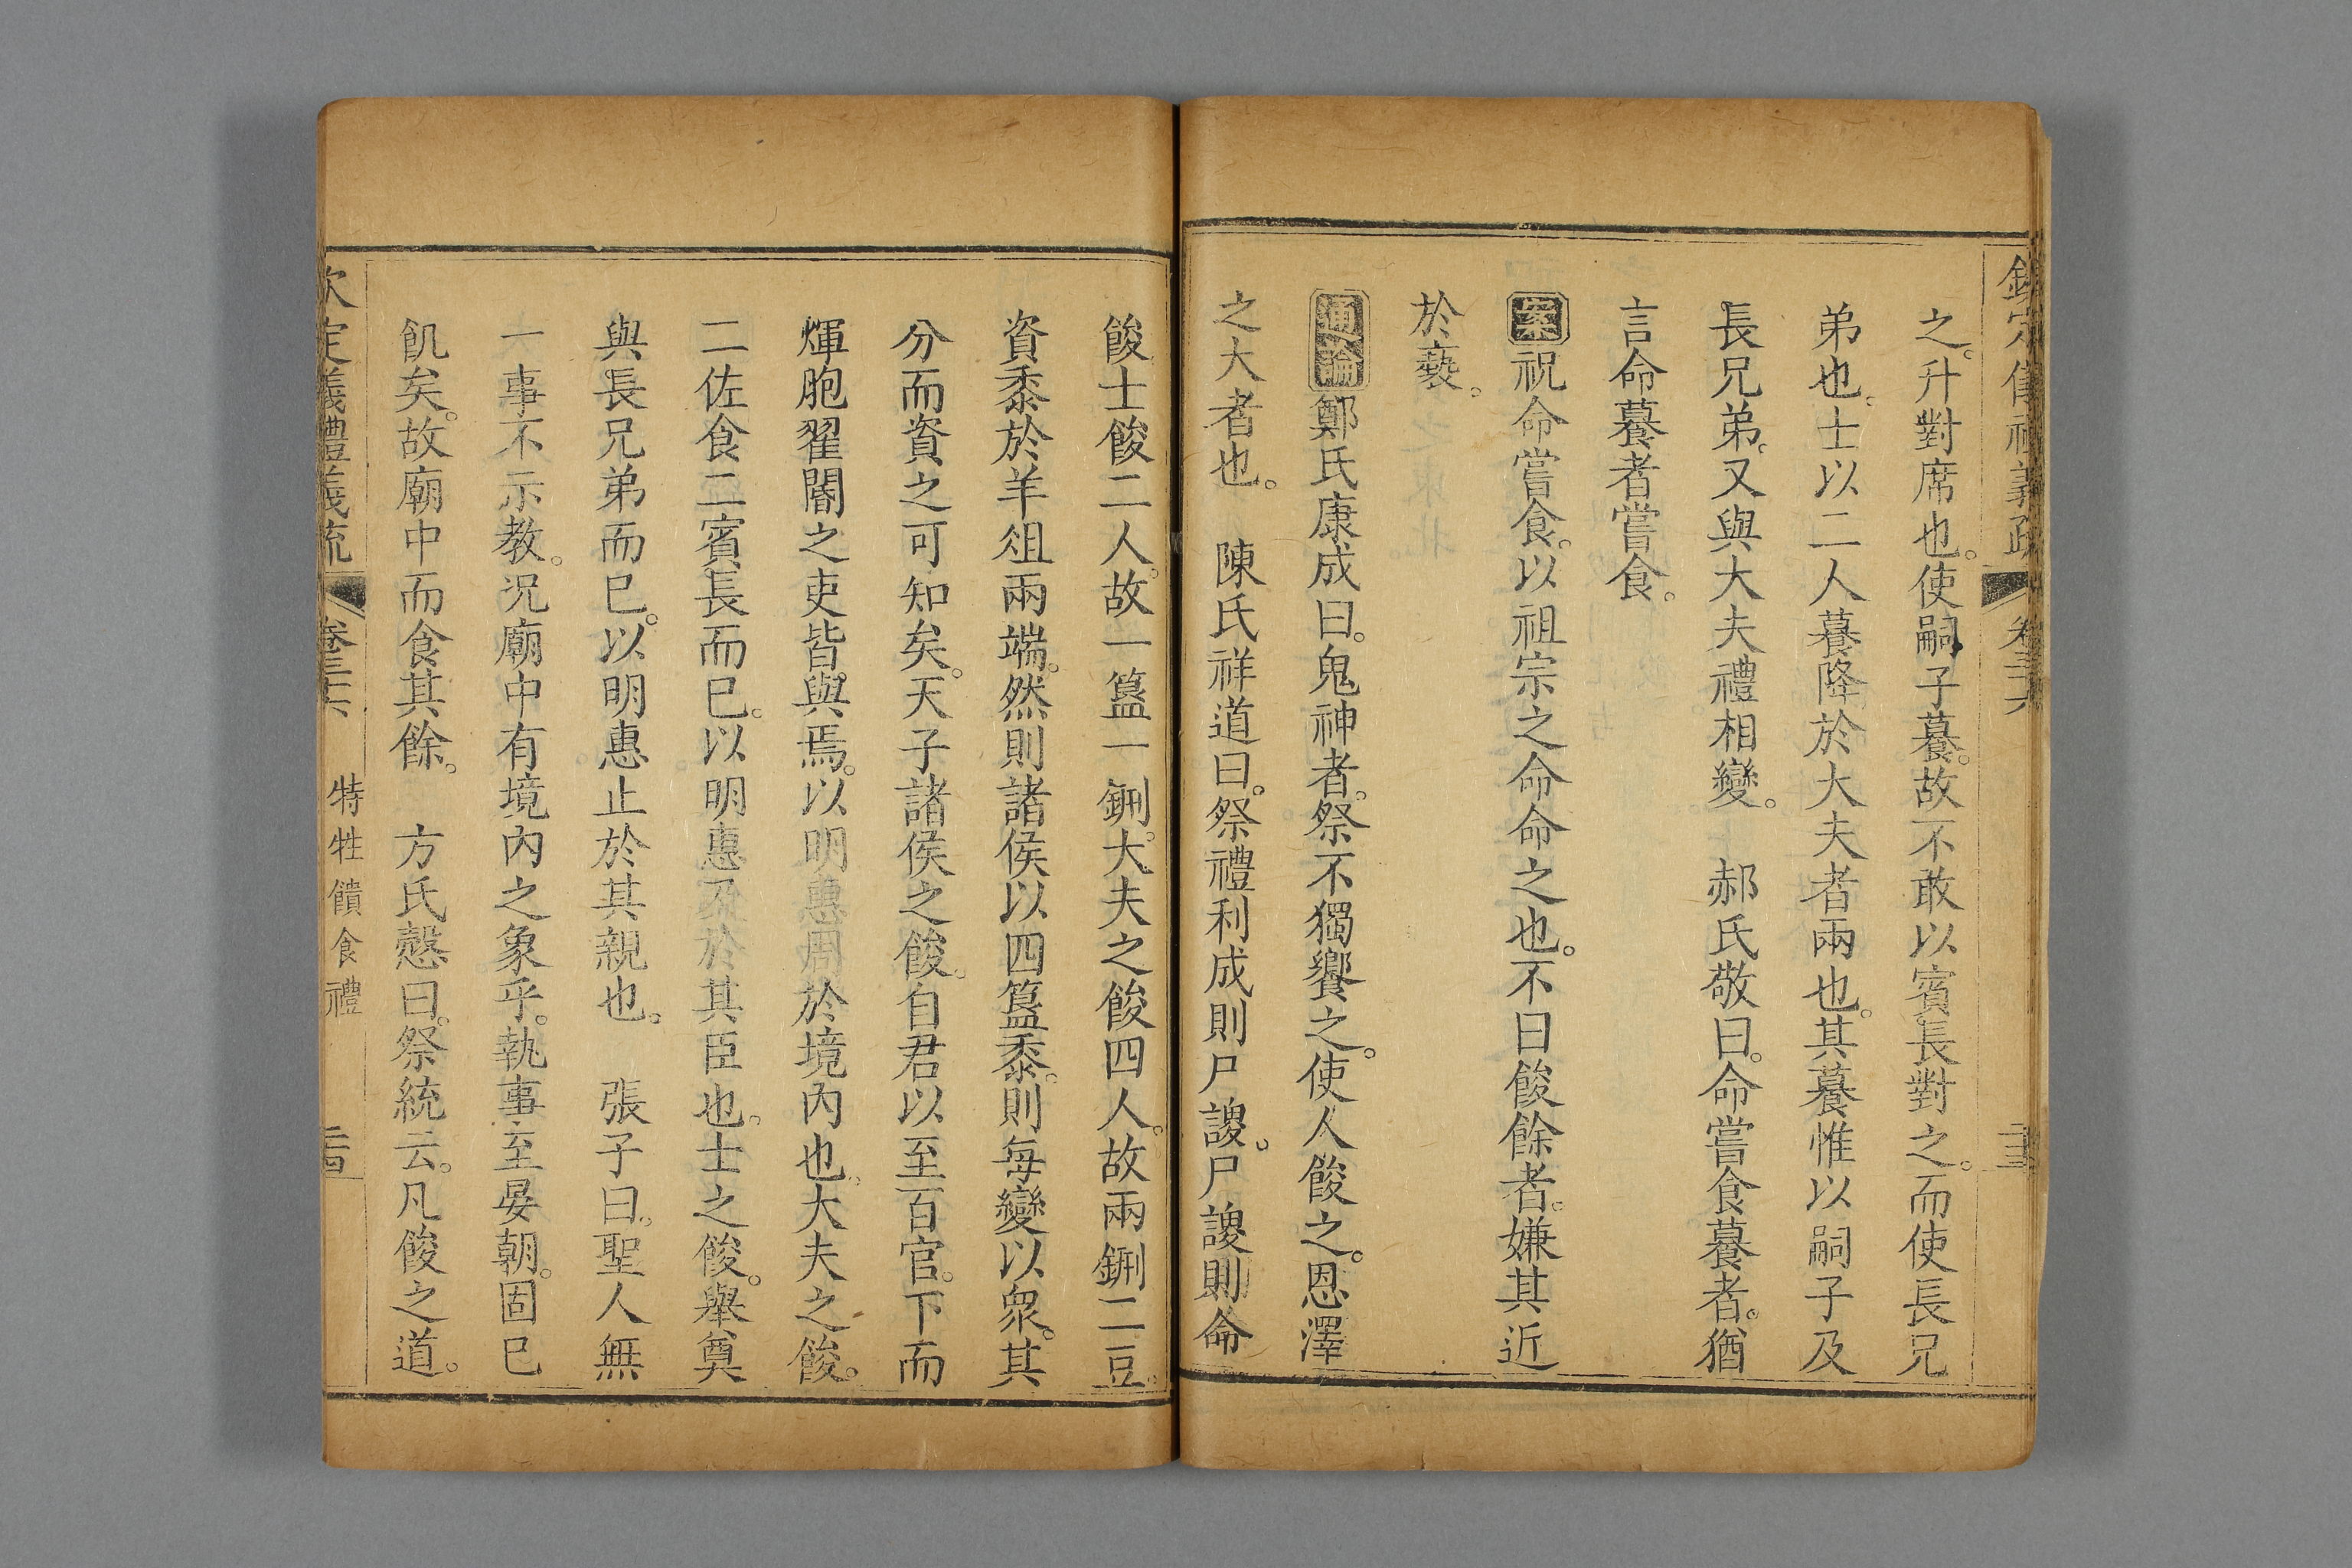 欽定儀禮義疏 卷三十六 二十三
之。升對席也。使嗣子䊤。故不敢以賓長對之。而使長兄
弟也。士以二人䊤。降於大夫者兩也。其䊤惟以嗣子及
長兄弟。又與大夫禮相變。 郝氏敬曰。命嘗食䊤者。猶
言命䊤者嘗食。
案祝命嘗食。以祖宗之命命之也。不曰餕餘者。嫌其近
於褻。
通論鄭氏康成曰。鬼神者。祭不獨饗之。使人餕之。恩澤
之大者也。 陳氏祥道曰。祭禮利成則尸謖。尸謖則命
餕。士餕二人。故一簋一鉶。大夫之餕四人。故兩鉶二豆。
資黍於羊俎兩端。然則諸侯以四簋黍。則每變以衆。其
分而資之可知矣。天子諸侯之餕。自君以至百官。下而
煇胞翟閽之吏皆與焉。以明惠周於境內也。大夫之餕。
二佐食二賓長而已。以明惠及於其臣也。士之餕。舉奠
與長兄弟而已。以明惠止於其親也。 張子曰。聖人無
一事不示教。况廟中有境內之象乎。執事至晏朝。固已
飢矣。故廟中而食其餘。 方氏慤曰。祭統云。凡餕之道。
欽定儀禮義疏 卷三十六 特牲饋食禮 二十四